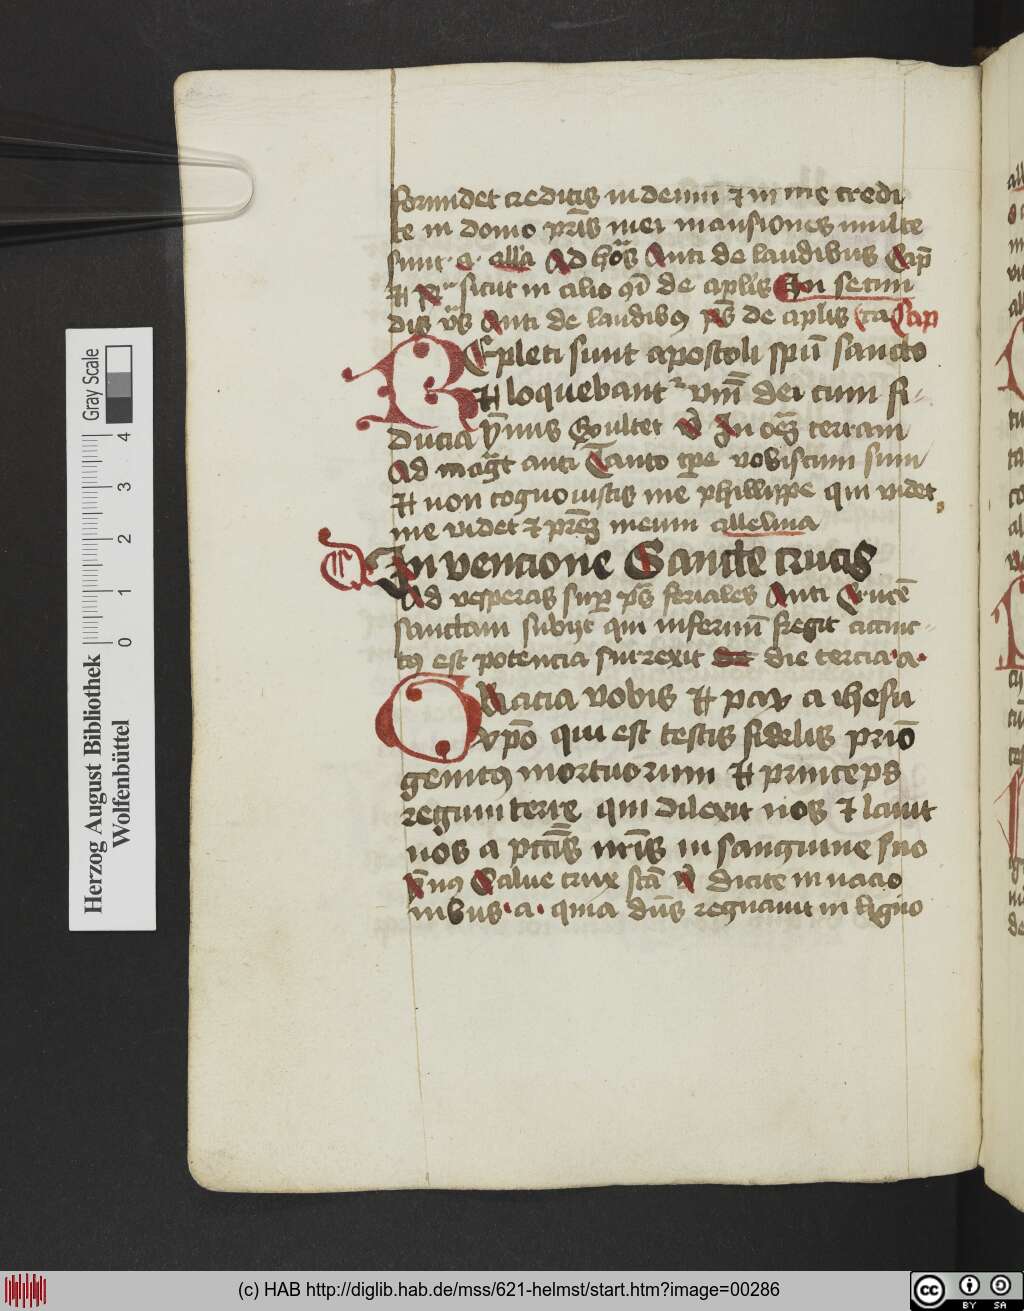 formidet creditis in deum et in me credi
te in domo pr̄is mei mansiones multe
sunt · a · all̄a Ad hōs Anti de laudibus Cap̄
et R̄ sicut in alio de ap̄lis In secun
dis v̄s Anti de laudibus p̄s de ap̄lis Cap
REpleti sunt apostoli spū sancto
et loquebant̄ dei cum fi-
ducia ȳmnus Exultet v̄ In om̄ terram
Ad mag̅t anti Tanto tp̄e vobiscum sum
et non cognouistis me phillippe qui videt
me videt et pr̄em meum alleluia
In vencione Sancte crucis
Ad vesperas sup̄ p̄s feriales Anti Crucē
sanctam subijt qui infernū fregit accinct-
us est potencia surrexit de die tercia · a ·
GRacia vobis et pax a ihesu
xp̄o qui est testis fidelis primo
genitus mortuorum et princeps
regum terre qui dilexit nos et lauit
nos a pctīs nr̄is in sanguine suo
ȳnus Salue crux scā v̄ dicite in nacio
nibus · a · quia dn̄s regnauit in ligno
Gray Scale
0 1 2 3 4
Herzog August Bibliothek
Wolfenbüttel
(c) HAB http://diglib.hab.de/mss/621-helmst/start.htm?image=00286
cc BY SA